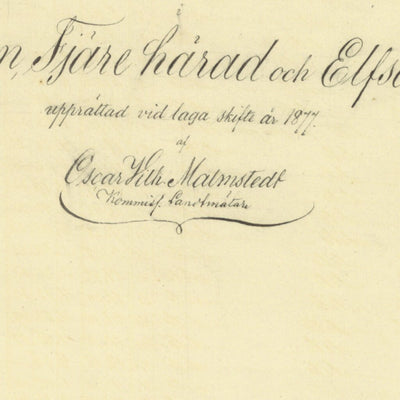 i
Fjäre härad och Elfs
upprättad vid laga skifte år 1877.
af
Oscar Wilh. Malmstedt
Kommiss. Landtmätare